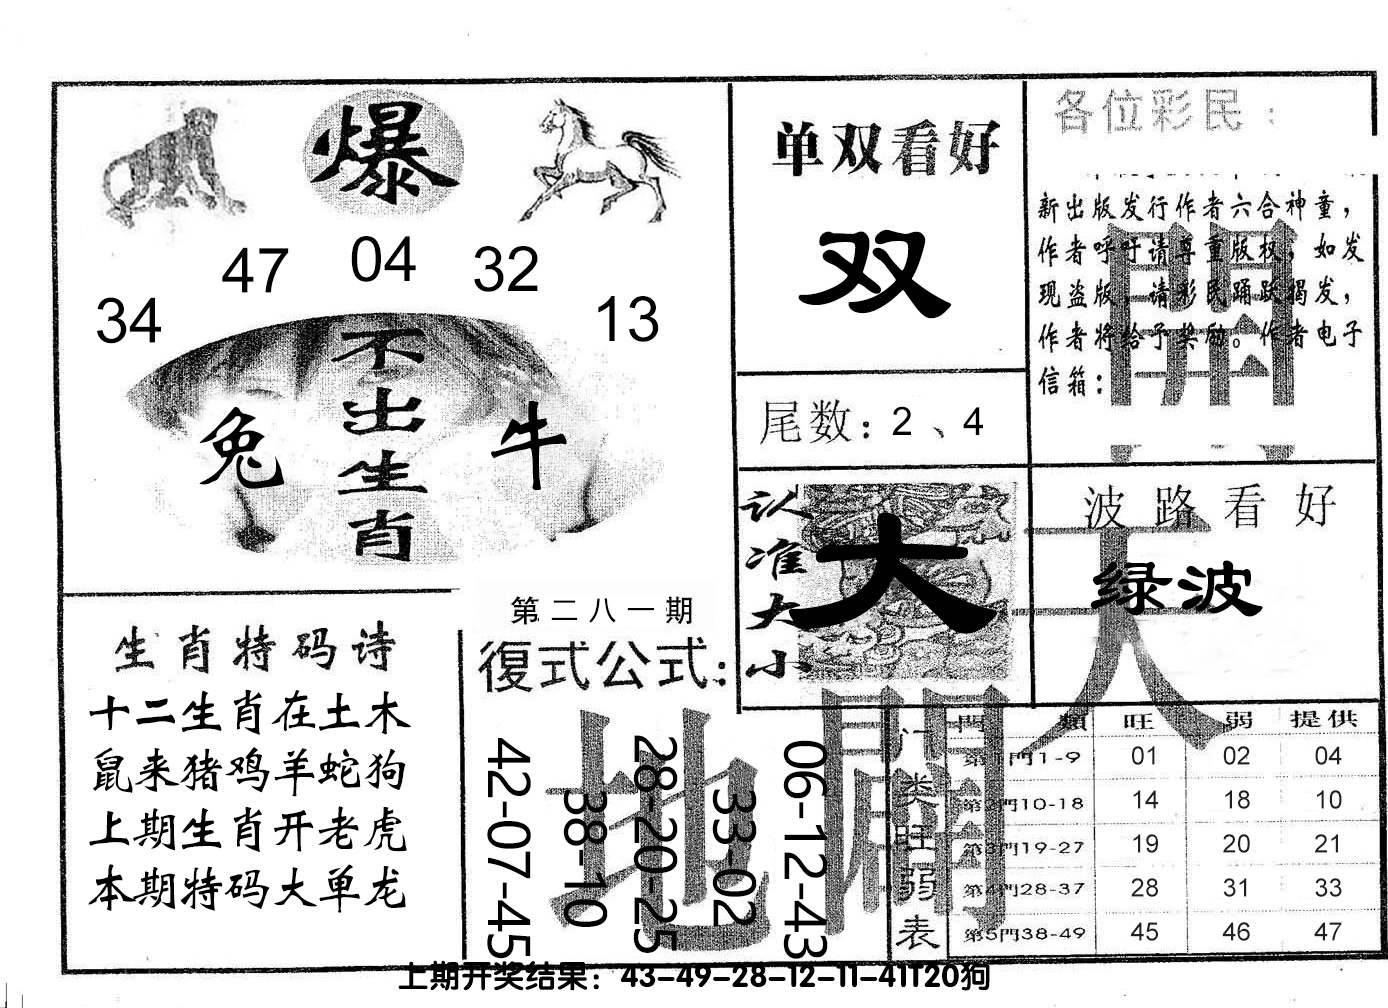 爆
47 04 32
34 13
不出生肖
兔 牛
生肖特码诗
十二生肖在土木
鼠来猪鸡羊蛇狗
上期生肖开老虎
本期特码大单龙
第二八一期
復式公式:
42-07-45
38-10
28-20-25
33-02
06-12-43
单双看好
双
尾数:2、4
认准大小
大
各位彩民:
新出版发行作者六合神童,
作者呼吁请尊重版权,如发
现盗版,请彩民踊跃揭发,
作者将给予奖励。作者电子
信箱:
波路看好
绿波
天
地
開
門類 旺 弱 提供
第1門1-9 01 02 04
第2門10-18 14 18 10
第3門19-27 19 20 21
第4門28-37 28 31 33
第5門38-49 45 46 47
门类旺弱表
上期开奖结果:43-49-28-12-11-41T20狗